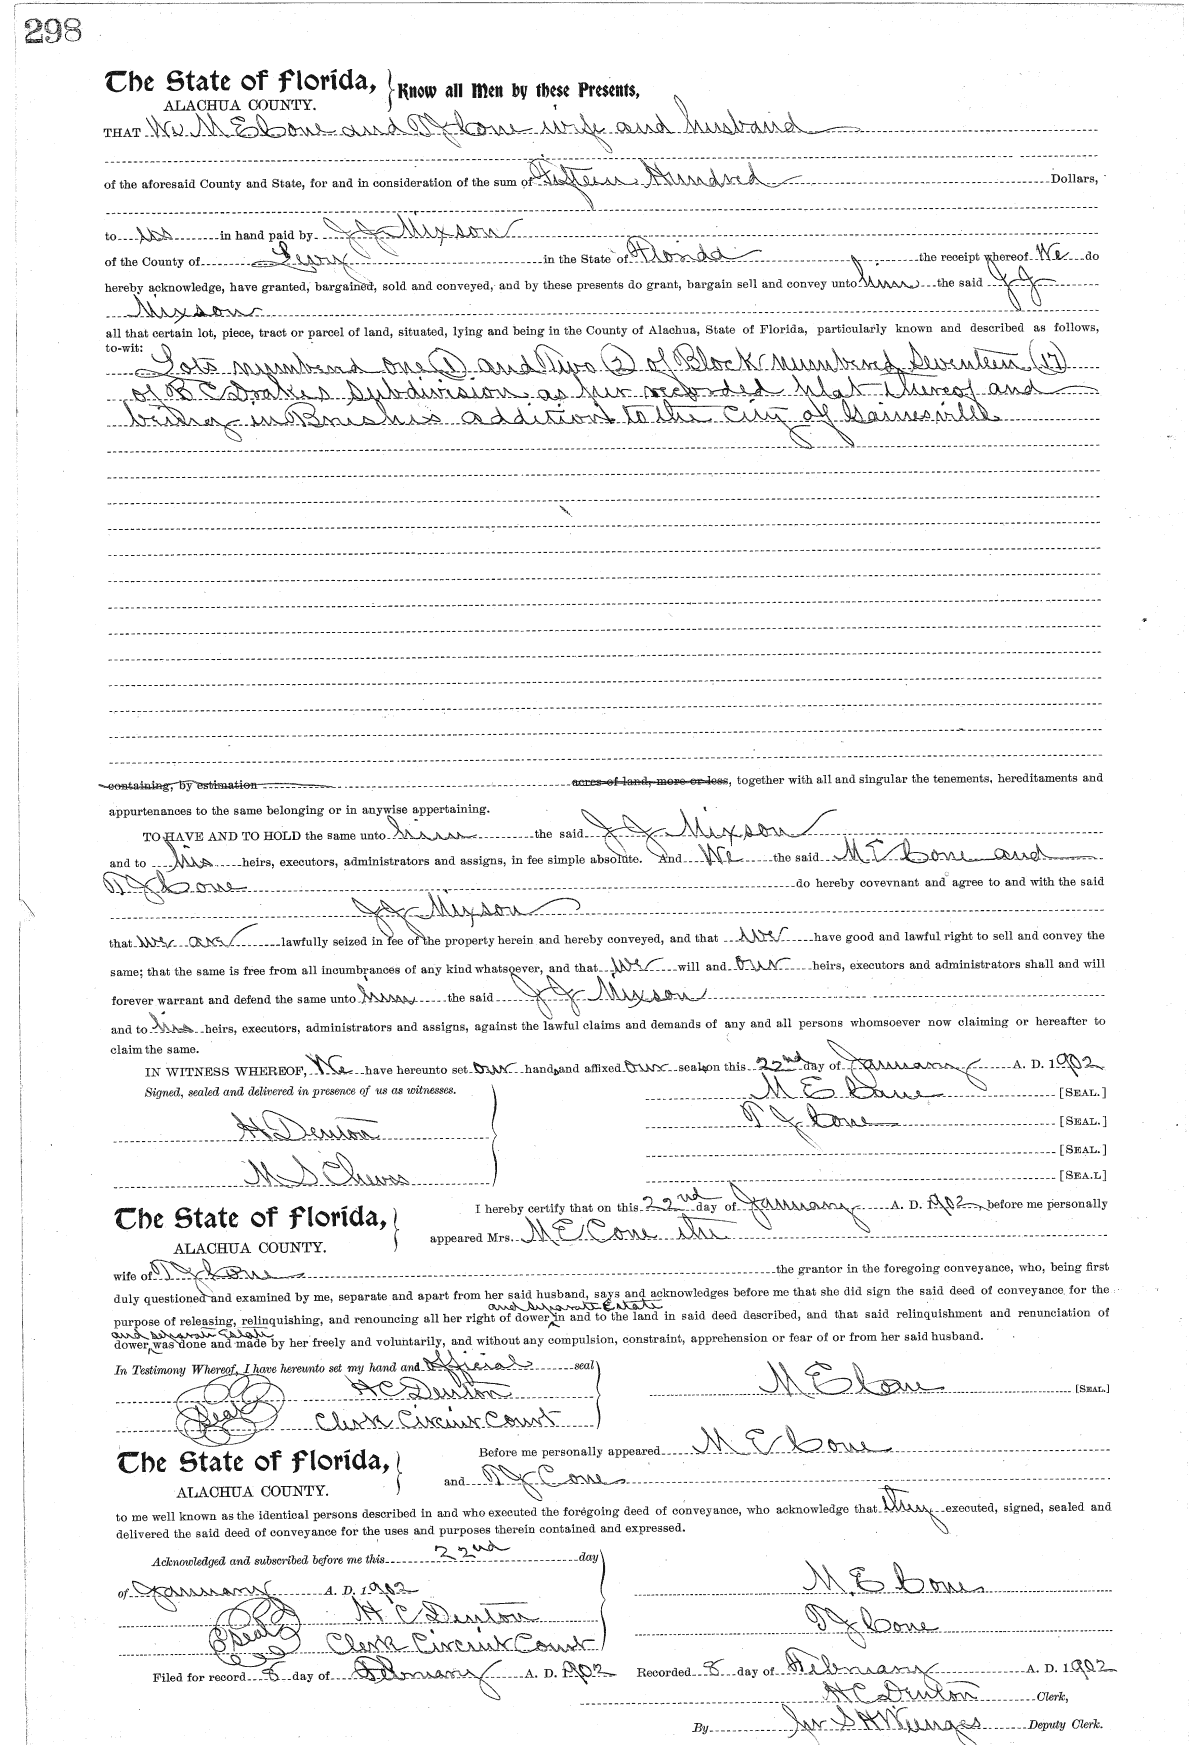 298
The State of Florida,
Know all Men by these Presents,
ALACHUA COUNTY.
THAT We M E Cone and T J Cone wife and husband
of the aforesaid County and State, for and in consideration of the sum of Fifteen Hundred Dollars,
to us in hand paid by J J Mixson
of the County of Levy in the State of Florida the receipt whereof We do
hereby acknowledge, have granted, bargained, sold and conveyed, and by these presents do grant, bargain sell and convey unto him the said J J
Mixson
all that certain lot, piece, tract or parcel of land, situated, lying and being in the County of Alachua, State of Florida, particularly known and described as follows,
to-wit: Lots numbered one (1) and Two (2) of Block numbered Seventeen (17)
of B C Drakes Subdivision as per recorded plat thereof and
being in Brushs addition to the City of Gainesville
containing, by estimation acres of land, more or less, together with all and singular the tenements, hereditaments and
appurtenances to the same belonging or in anywise appertaining.
TO HAVE AND TO HOLD the same unto him the said J J Mixson
and to his heirs, executors, administrators and assigns, in fee simple absolute. And We the said M E Cone and
T J Cone do hereby covevnant and agree to and with the said
J J Mixson
that we are lawfully seized in fee of the property herein and hereby conveyed, and that we have good and lawful right to sell and convey the
same; that the same is free from all incumbrances of any kind whatsoever, and that we will and our heirs, executors and administrators shall and will
forever warrant and defend the same unto him the said J J Mixson
and to his heirs, executors, administrators and assigns, against the lawful claims and demands of any and all persons whomsoever now claiming or hereafter to
claim the same.
IN WITNESS WHEREOF, We have hereunto set our hands and affixed our seals on this 22nd day of January A. D. 1902
Signed, sealed and delivered in presence of us as witnesses.
M E Cone [SEAL.]
T J Cone [SEAL.]
H Denton
[SEAL.]
M S Cheves
[SEA.L]
The State of Florida,
ALACHUA COUNTY.
I hereby certify that on this 22nd day of January A. D. 1902, before me personally
appeared Mrs. M E Cone the
wife of T J Cone the grantor in the foregoing conveyance, who, being first
duly questioned and examined by me, separate and apart from her said husband, says and acknowledges before me that she did sign the said deed of conveyance for the
and separate Estate
purpose of releasing, relinquishing, and renouncing all her right of dower in and to the land in said deed described, and that said relinquishment and renunciation of
and separate Estate
dower was done and made by her freely and voluntarily, and without any compulsion, constraint, apprehension or fear of or from her said husband.
In Testimony Whereof, I have hereunto set my hand and official seal
H C Denton
M E Cone [SEAL.]
Seal Clerk Circuit Court
The State of Florida,
ALACHUA COUNTY.
Before me personally appeared M E Cone
and T J Cone
to me well known as the identical persons described in and who executed the foregoing deed of conveyance, who acknowledge that they executed, signed, sealed and
delivered the said deed of conveyance for the uses and purposes therein contained and expressed.
Acknowledged and subscribed before me this 22nd day
of January A. D. 1902
M. E Cone
H C Denton
T J Cone
Seal Clerk Circuit Court
Filed for record 8 day of February A. D. 1902 Recorded 8 day of February A. D. 1902
H C Denton Clerk,
By S H Wienges Deputy Clerk.